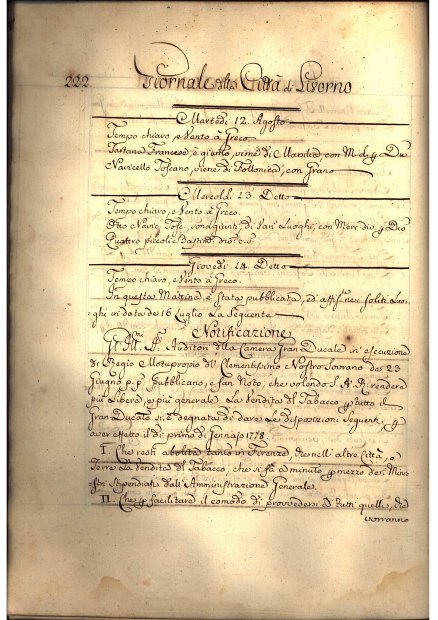 222 Giornale della Città di Livorno
Martedì 12. Agosto
Tempo chiaro, e Vento à Greco
Tartana Francese, è giunta, viene di Marsilia con M. d. g Du
Navicello Toscano, viene di Follonica, con Grano
Mercoldì 13. Detto
Tempo chiaro, e Vento à Greco
Otto Navic. Tosc. sono giunti, di Vari Luoghi, con Merc. div. g Div
Quattro piccoli Bastim. div. e. v.
Giovedì 14. Detto
Tempo chiaro, e Vento à Greco.
In questa Mattina è stata pubblicata, ed aff. ne' soliti Luo-
ghi in data de 16 Luglio La seguente
Notificazione
Gl' Ill. SS. Auditori della Camera Gran Ducale in esecuzione
di Regio Motuproprio del Clementissimo Nostro Sovrano de 23
Giugno p. p. Pubblicano, e fan Noto, che volendo S. A. R. rendere
più Libera, e più generale La Vendita del Tabacco p tutto il
Gran Ducato si è degnata di dare Le disposizioni Seguenti, p
aver effetto il dì primo di Gennajo 1778.
I. Che resti abolita tanto in Firenze, che nell' altre Città, e
Terre La Vendita di Tabacco, che si fà à minuto p mezzo de' Mini-
stri Stipendiati dall' Amministrazione Generale.
II. Che p facilitare il comodo di provvedersi à Tutti quelli, che
vorranno